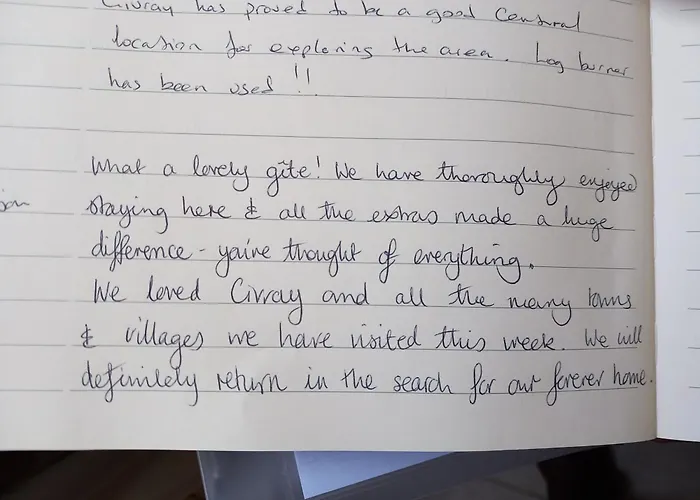 Civray has proved to be a good central
location for exploring the area. Log burner
has been used!!
What a lovely gîte! We have thoroughly enjoyed
staying here & all the extras made a huge
difference - you've thought of everything.
We loved Civray and all the many towns
& villages we have visited this week. We will
definitely return in the search for our forever home.